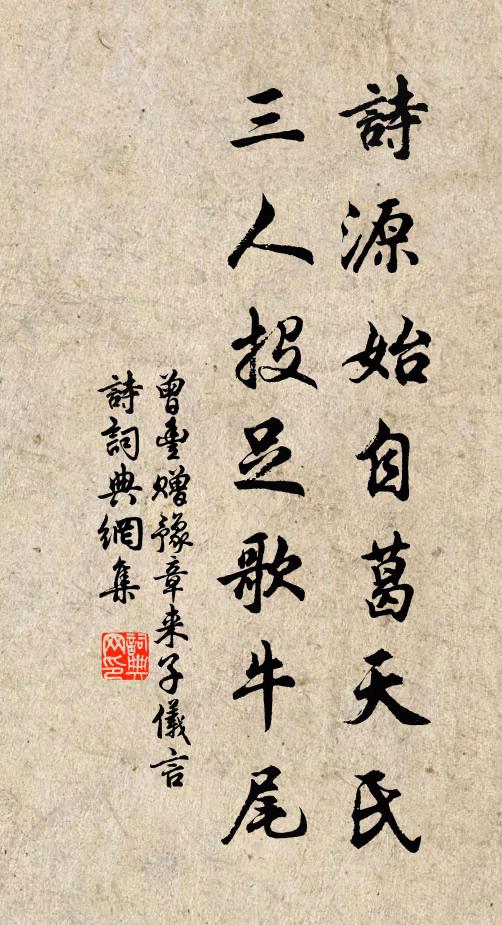 詩源始自葛天氏
三人投足歌牛尾
曾豐贈豫章来子儀言
詩詞典網集
詞典网印